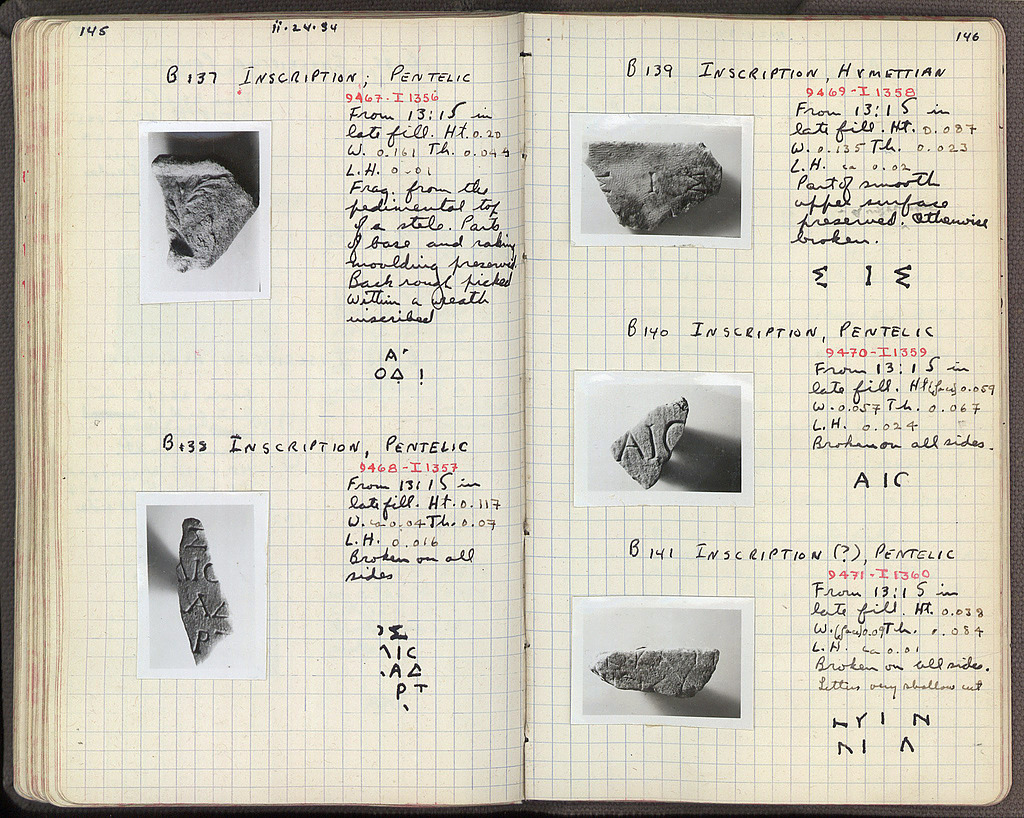 145
ii·24·34
B 137 INSCRIPTION; PENTELIC
9467·I 1356
From 13:15 in
late fill. Ht. 0.20
W. 0.161 Th. 0.044
L.H. 0.01
Frag. from the
pedimental top
of a stele. Parts
of base and raking
moulding preserved.
Back rough picked
Within a wreath
inscribed
Α
ΟΔ
B 138 INSCRIPTION, PENTELIC
9468-I 1357
From 13:15 in
late fill. Ht. 0.117
W. ca 0.04 Th. 0.07
L.H. 0.016
Broken on all
sides
Σ
ΛΙC
.ΑΔ
ΡΤ
146
B 139 INSCRIPTION, HYMETTIAN
9469-I 1358
From 13:15 in
late fill. Ht. 0.087
W. 0.135 Th. 0.023
L.H. ca 0.02
Part of smooth
upper surface
preserved. Otherwise
broken.
Σ Ι Σ
B 140 INSCRIPTION, PENTELIC
9470-I 1359
From 13:15 in
late fill. Ht (face) 0.059
W. 0.057 Th. 0.067
L.H. 0.024
Broken on all sides.
Α ΙC
B 141 INSCRIPTION (?), PENTELIC
9471-I 1360
From 13:15 in
late fill. Ht. 0.038
W. (face) 0.09 Th. 0.084
L.H. ca 0.01
Broken on all sides.
Letters very shallow cut
ΥΙ Ν
ΝΙ Λ